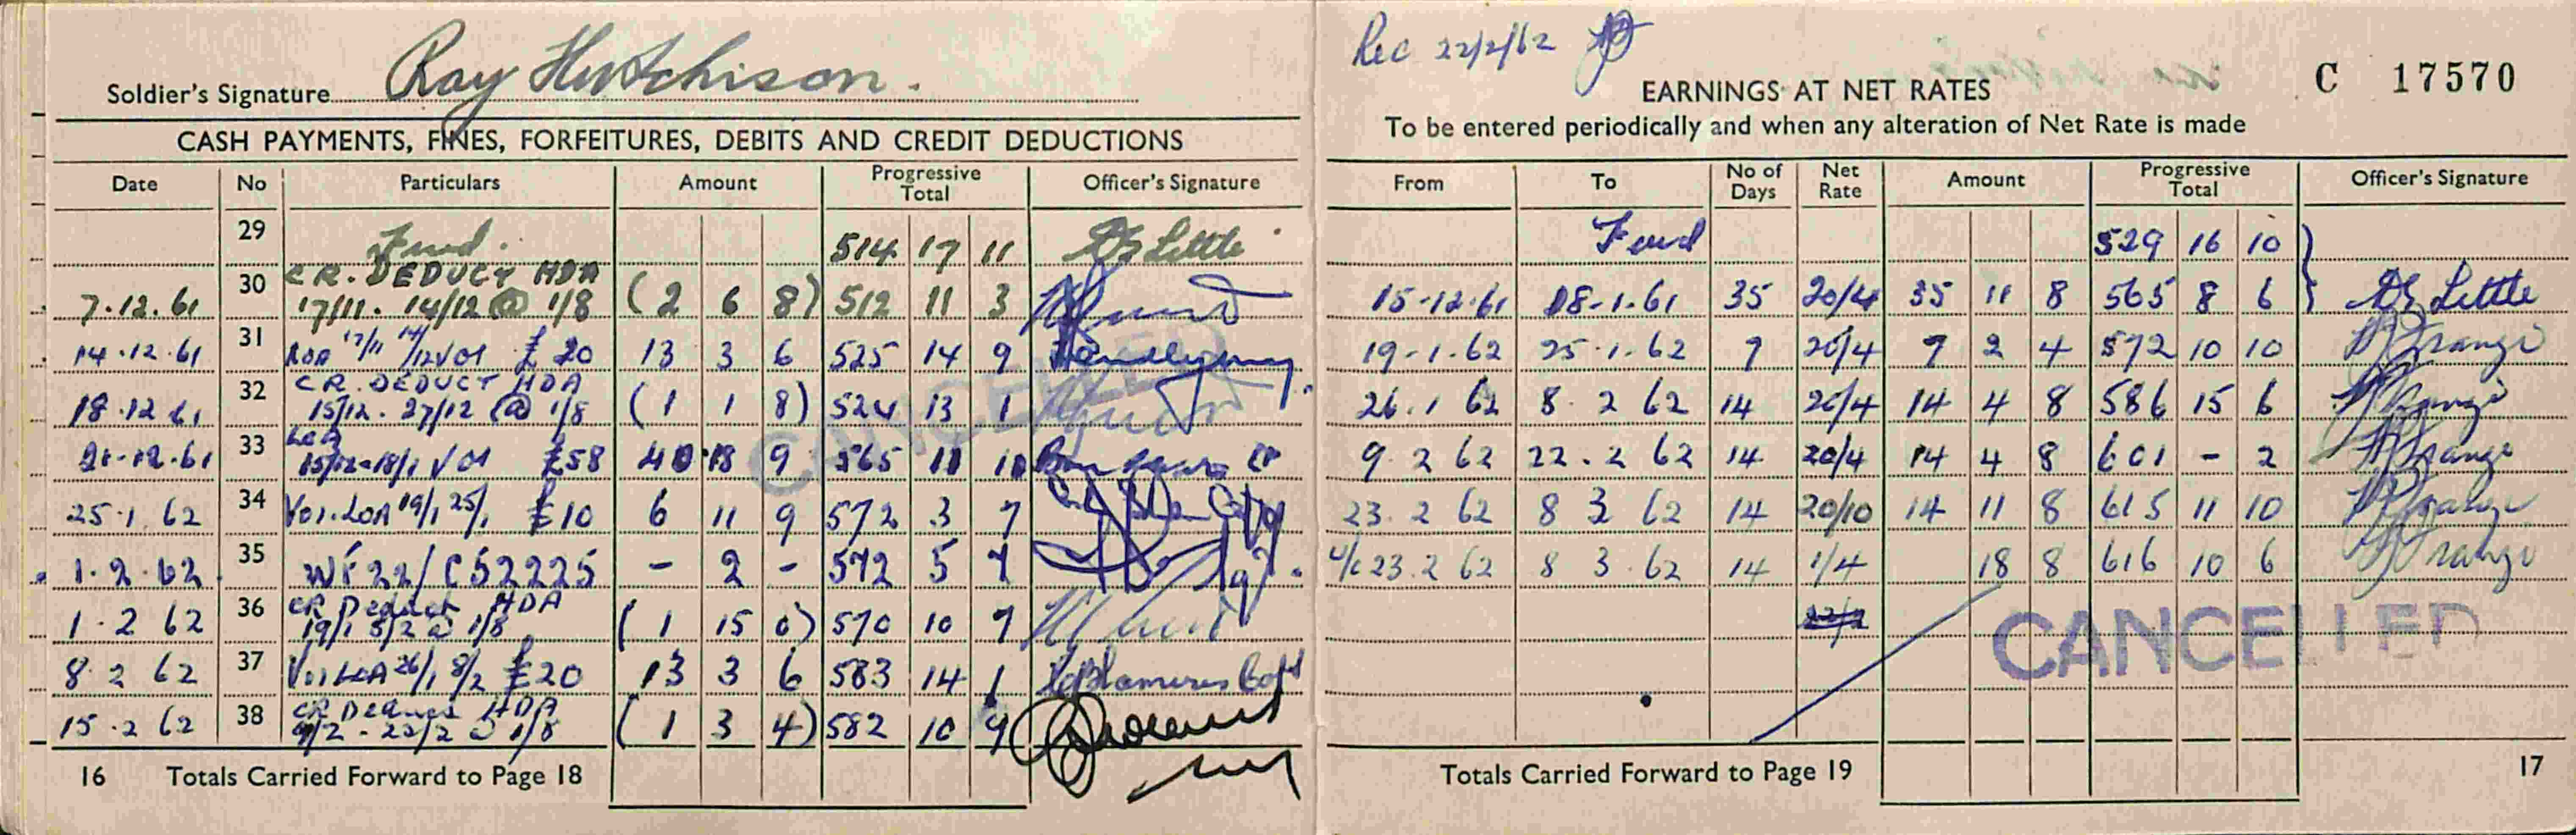 Soldier's Signature Ray Hutchison.
CASH PAYMENTS, FINES, FORFEITURES, DEBITS AND CREDIT DEDUCTIONS
Date No Particulars Amount Progressive Total Officer's Signature
29 Fwd. 514 17 11 Little
7.12.61 30 CR. DEDUCT HDA 17/11. 14/12 @ 1/8 (2 6 8) 512 11 3
14.12.61 31 LOA 17/11 14/12 VOI £20 13 3 6 525 14 9
18.12.61 32 CR. DEDUCT HDA 15/12. 27/12 @ 1/8 (1 1 8) 524 13 1
21.12.61 33 LOA 15/12-18/1 VOI £58 40 18 9 565 11 10
25.1.62 34 VOI. LOA 19/1 25/1 £10 6 11 9 572 3 7
1.2.62 35 WF22/C52225 - 2 - 572 5 7
1.2 62 36 CR Deduct HDA 19/1 8/2 @ 1/8 (1 15 0) 570 10 7
8.2 62 37 VOI LOA 26/1 8/2 £20 13 3 6 583 14 1
15.2 62 38 CR Deduct HDA 9/2 - 22/2 @ 1/8 (1 3 4) 582 10 9
16 Totals Carried Forward to Page 18
CANCELLED
Rec 22/2/62
C 17570
EARNINGS AT NET RATES
To be entered periodically and when any alteration of Net Rate is made
From To No of Days Net Rate Amount Progressive Total Officer's Signature
Fwd 529 16 10
15-12.61 18-1.61 35 20/4 35 11 8 565 8 6 Little
19-1.62 25.1.62 7 20/4 7 2 4 572 10 10
26.1 62 8.2 62 14 20/4 14 4 8 586 15 6
9.2 62 22.2 62 14 20/4 14 4 8 601 - 2
23.2 62 8 3 62 14 20/10 14 11 8 615 11 10
u/c 23.2 62 8 3.62 14 1/4 18 8 616 10 6
CANCELLED
Totals Carried Forward to Page 19 17